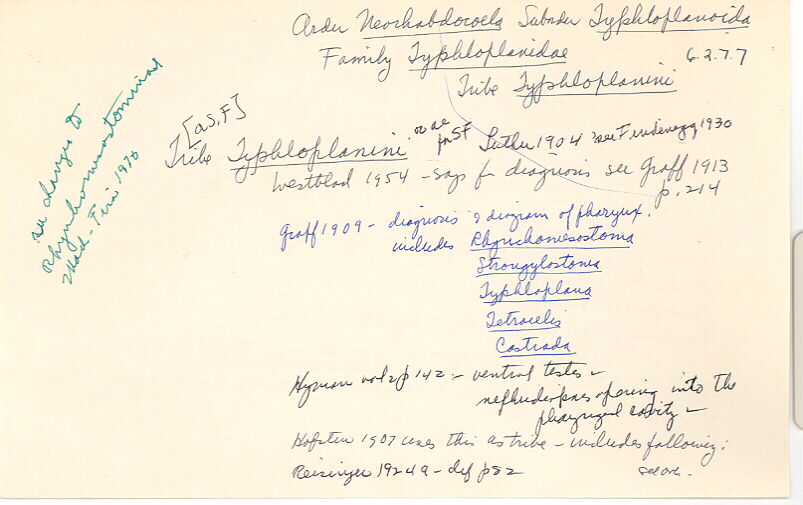 Order Neorhabdocoela Suborder Typhloplanoida
Family Typhloplanidae 6.2.7.7
Tribe Typhloplanini
[as F]
Tribe Typhloplanini or ae for SF Luther 1904 see Findenegg 1930
Westblad 1954 - says for diagnosis see Graff 1913
p. 214
Graff 1909 - diagnosis & diagram of pharynx.
includes Rhynchomesostoma
Strongylostoma
Typhloplana
Tetracelis
Castrada
Hyman vol 2 p 142 - ventral testes -
nephridiopores opening into the
pharyngeal cavity -
Hofsten 1907 uses this as tribe - includes following:
Reisinger 1924a - def p 82 see over -
see changes to
Rhynchomesostominae
1970